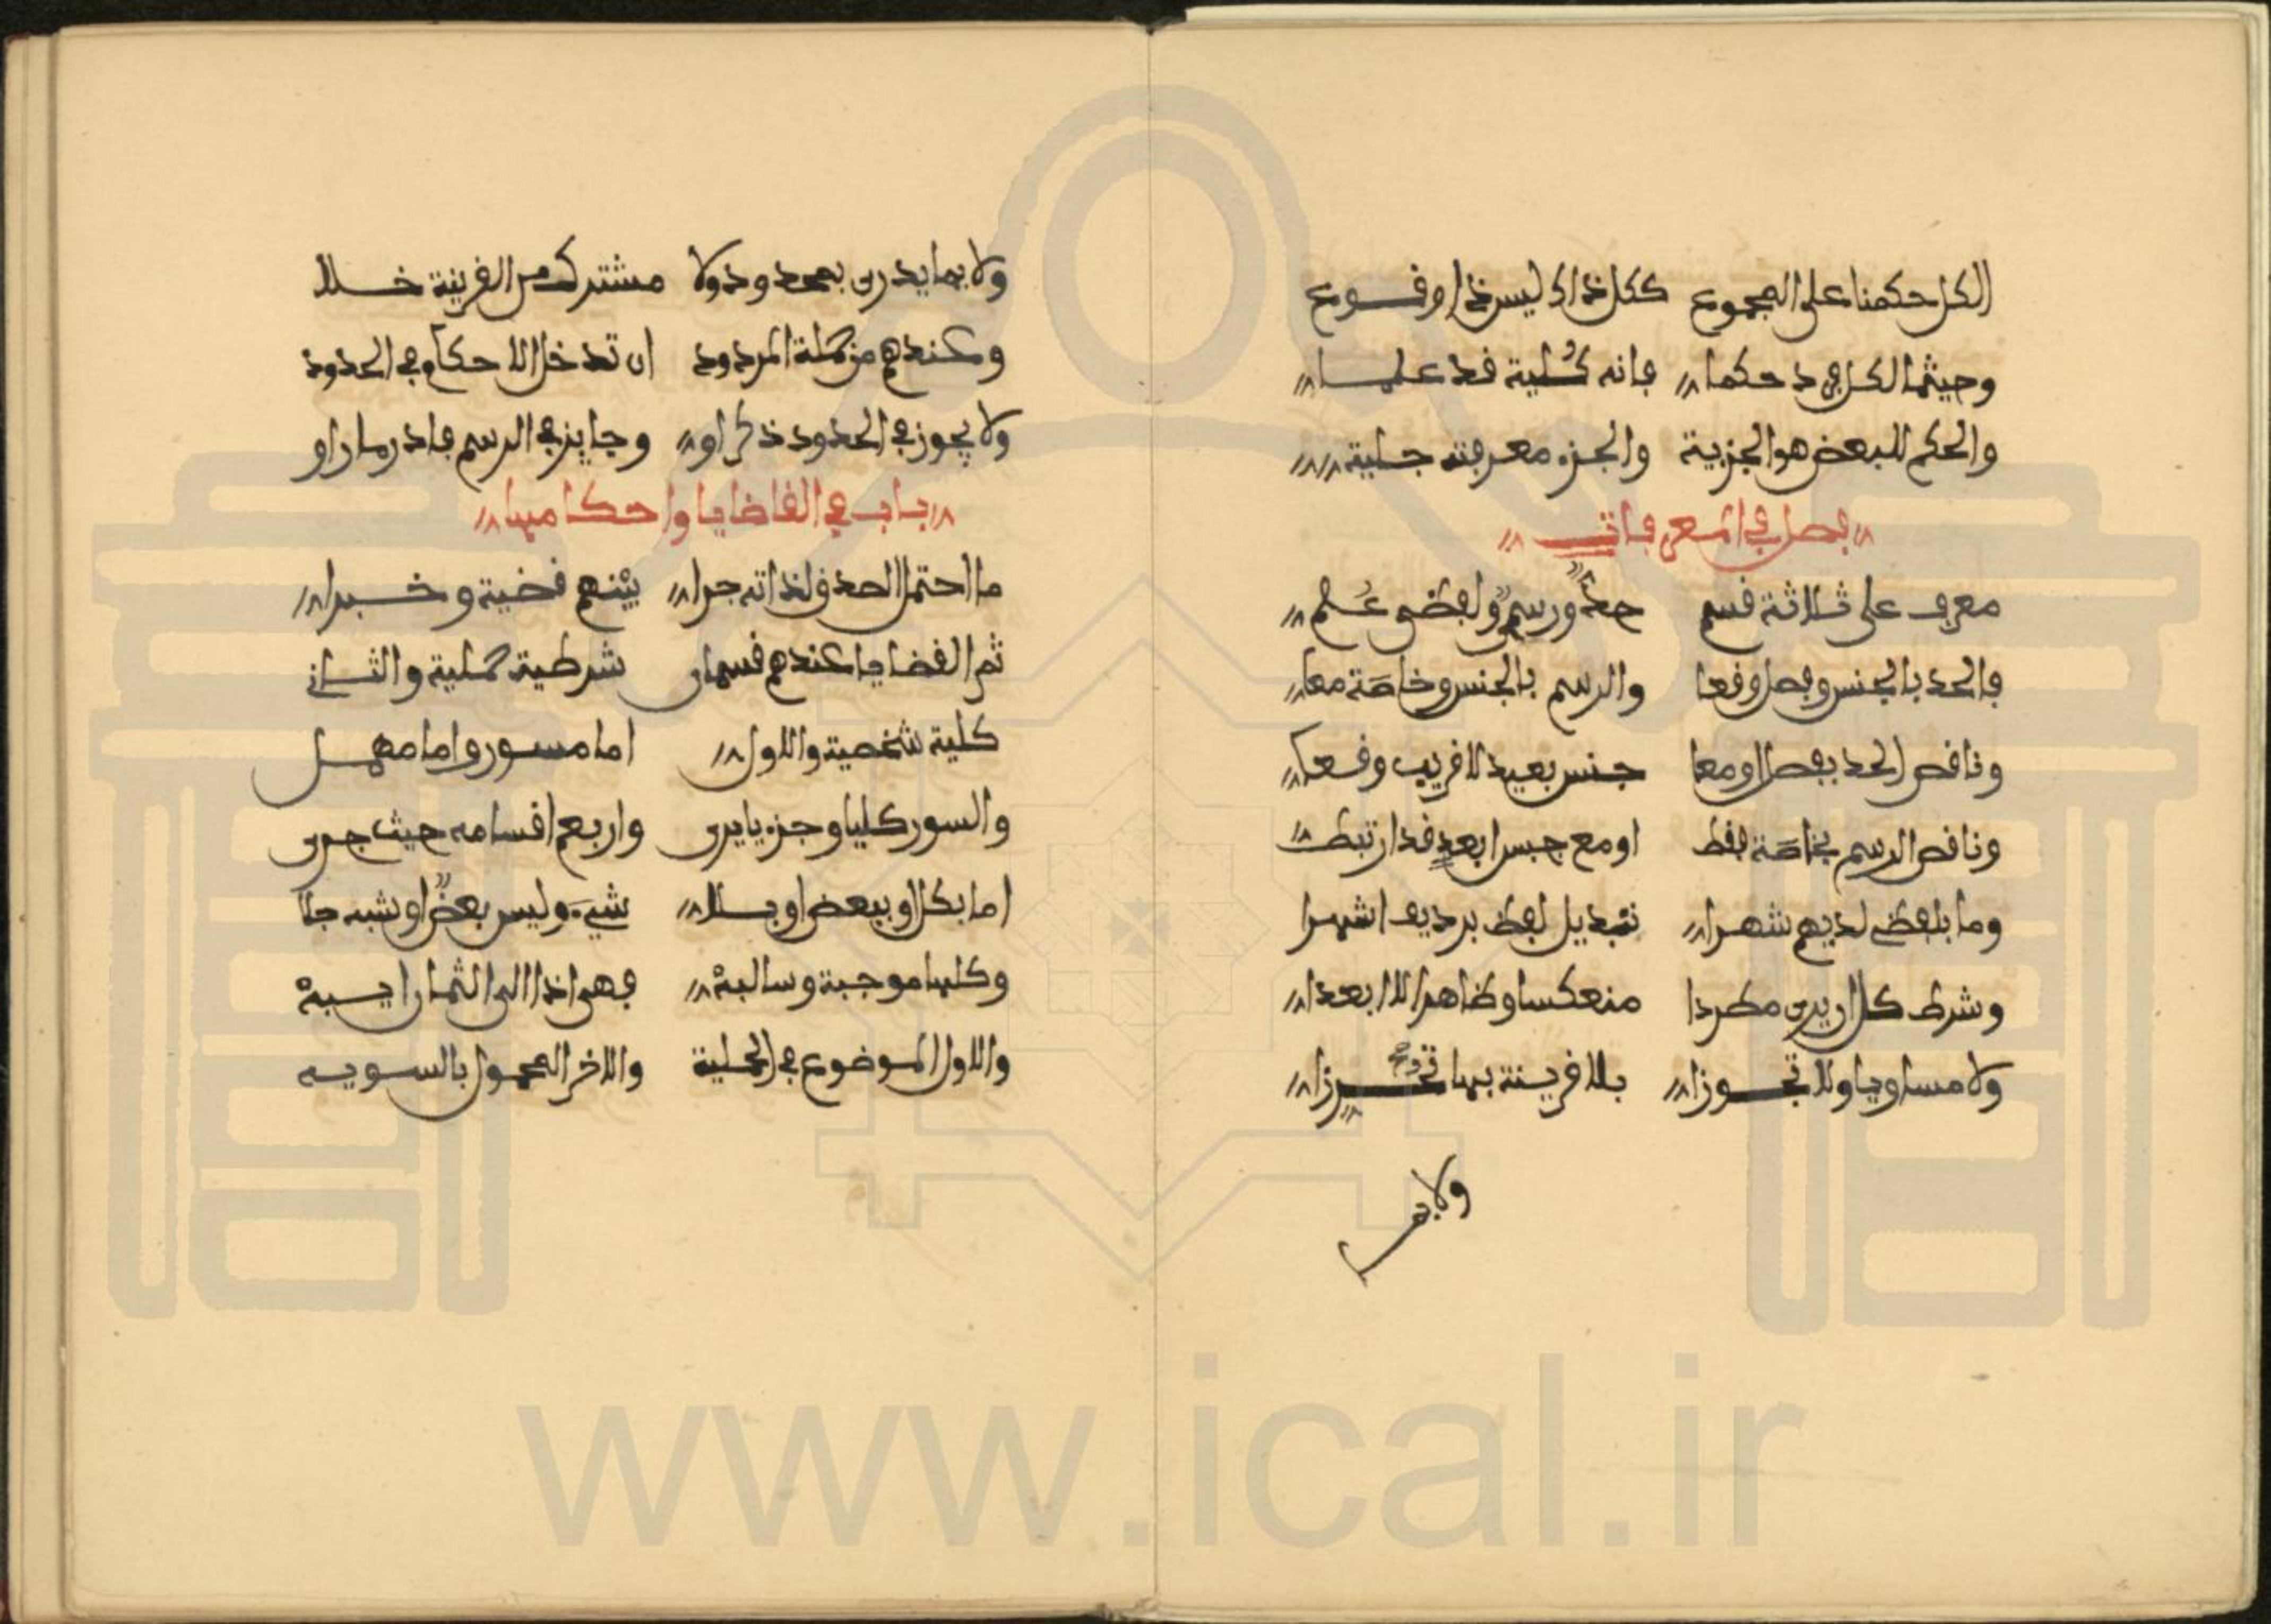 الكل حكمنا على المجموع ككل ذاك ليس ذا وقوع
وحيثما لكل فرد حكما فانه كلية قد علما
والحكم للبعض هو الجزيية والجزء معرفته جلية
فصل في المعرفات
معرف على ثلاثة قسم حد ورسم ولفظي علم
فالحد بالجنس وفصل وقعا والرسم بالجنس وخاصة معا
وناقص الحد بفصل او معا جنس بعيد لا قريب وقعا
وناقص الرسم بخاصة فقط او مع جنس ابعد قد ارتبط
وما بلفظي لديهم شهرا تبديل لفظ برديف اشهرا
وشرط كل ان يرى مطردا منعكسا وظاهرا لا ابعدا
ولا مساويا ولا تجوزا بلا قرينة بها تحرزا
ولا بما
ولا بما يدرى بمحدود ولا مشترك من القرينة خلا
وعندهم من جملة المردود ان تدخل الاحكام في الحدود
ولا يجوز في الحدود ذكر او وجايز في الرسم فادر ما راو
باب في القاضايا واحكامها
ما احتمل الصدق لذاته جرا بينهم قضية وخبرا
ثم القضايا عندهم قسمان شرطية حملية والثاني
كلية شخصية والاول اما مسور واما مهمل
والسور كليا وجزءيا يرى واربع اقسامه حيث جرى
اما بكل او ببعض او بلا شيء وليس بعض او شبه جلا
وكلها موجبة وسالبة فهي اذا الى الثمان ايبة
والاول الموضوع في الحملية والاخر المحمول بالسويه
www.ical.ir